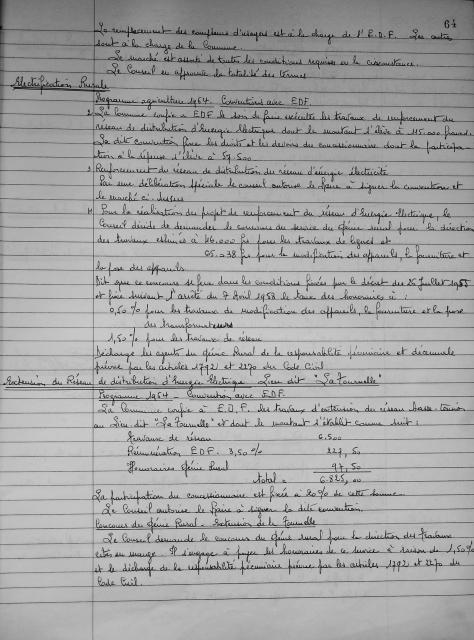 64
Le remplacement des compteurs d'usagers est à la charge de l'E.D.F. Les autres
sont à la charge de la Commune.
Le marché est assorti de toutes les conditions requises en la circonstance.
Le Conseil en approuve la totalité des termes
Electrification Rurale
Programme agriculture 1964. Conventions avec EDF.
La Commune confie à EDF le soin de faire exécuter les travaux de renforcement du
réseau de distribution d'Energie Electrique dont le montant s'élève à 115.000 francs.
La dite convention fixe les droits et les devoirs du concessionnaire dont la participa-
tion à la dépense s'élève à 57.500
Renforcement du réseau de distribution du réseau d'énergie électricité
Par une délibération spéciale le conseil autorise le Maire à signer la convention et
le marché ci-dessus
Pour la réalisation du projet de renforcement du réseau d'Energie Electrique, le
Conseil décide de demander le concours du service du Génie rural pour la direction
des travaux estimés à 46.000 frs pour les travaux de lignes et
05.038 frs pour la modification des appareils, la fourniture et
la pose des appareils
Dit que ce concours se fera dans les conditions fixées par le décret des 26 Juillet 1955
et fixe suivant l'arrêté du 7 Avril 1958 le taux des honoraires à :
0,50% pour les travaux de modification des appareils, la fourniture et la pose
des transformateurs
1,50% pour les travaux de réseau
Décharge les agents du Génie Rural de la responsabilité pécuniaire et décennale
prévue par les articles 1792 et 2270 du Code Civil
Extension du Réseau de distribution d'Energie Electrique. Lieu dit "La Fournelle"
Programme 1964 - Convention avec EDF.
La Commune confie à E.D.F. les travaux d'extension du réseau basse-tension
au Lieu dit "La Fournelle" et dont le montant s'établit comme suit :
Travaux de réseau 6.500
Rémunération E.D.F. 3,50% 227,50
Honoraires Génie Rural 97,50
total = 6.825,00
La participation du concessionnaire est fixée à 20% de cette somme.
Le Conseil autorise le Maire à signer la dite convention.
Concours du Génie Rural - Extension de la Fournelle
Le Conseil demande le concours du Génie rural pour la direction des Travaux
cités en marge. Il s'engage à payer les honoraires de ce service à raison de 1,50%
et le décharge de la responsabilité pécuniaire prévue par les articles 1792 et 2270 du
Code Civil.